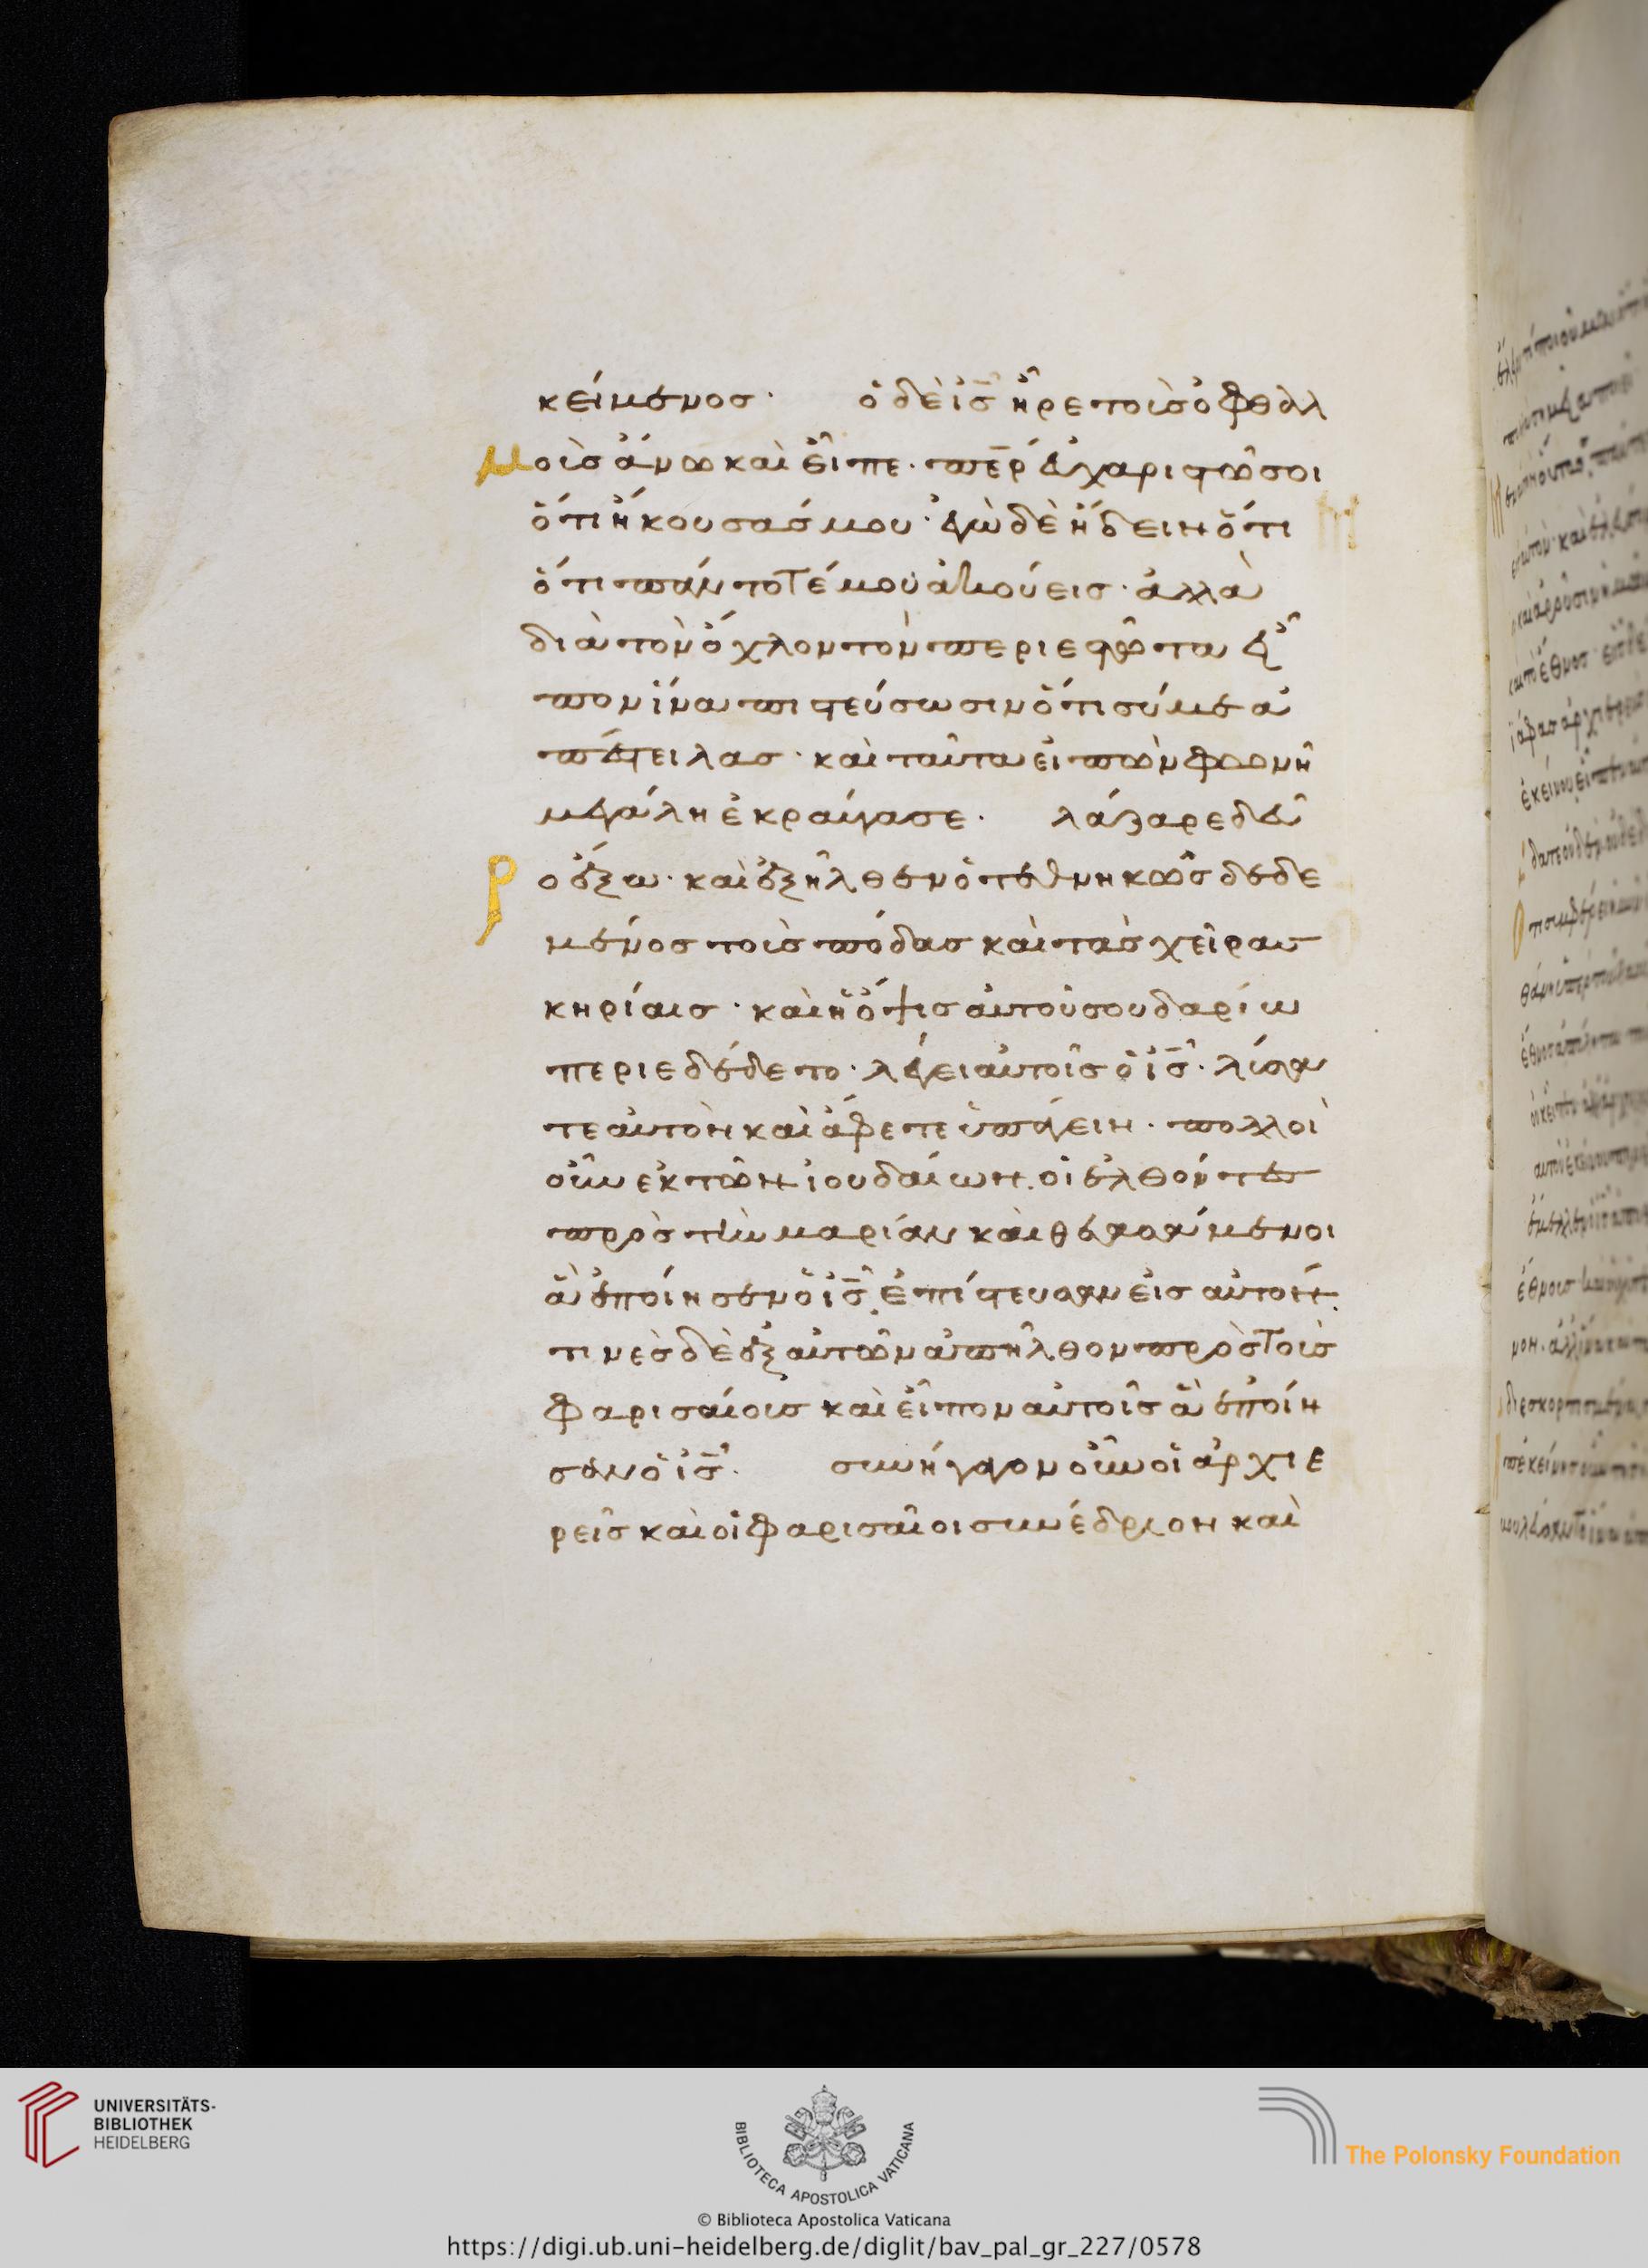 κείμενος· ὁ δὲ ἰς̅ ἦρε τοὺς ὀφθαλ
μοὺς ἄνω καὶ εἶπε· περ̅ εὐχαριστῶ σοι
ὅτι ἤκουσάς μου· ἐγὼ δὲ ἤδειν ὅτι
ὅτι πάντοτέ μου ἀκούεις· ἀλλὰ
διὰ τὸν ὄχλον τὸν περιεστῶτα εἶ
πον ἵνα πιστεύσωσιν ὅτι σύ με ἀ
πέστειλας· καὶ ταῦτα εἰπὼν φωνῆ
μεγάλη ἐκραύγασε· λάζαρε δεῦ
ρο ἔξω· καὶ ἐξῆλθεν ὁ τεθνηκὼς δεδε
μένος τοὺς πόδας καὶ τὰς χεῖρας
κηρίαις· καὶ ἡ ὄψις αὐτοῦ σουδαρίω
περιεδέδετο· λέγει αὐτοῖς ὁ ἰς̅· λύσα
τε αὐτὸν καὶ ἄφετε ὑπάγειν· πολλοὶ
οὖν ἐκ τῶν ἰουδαίων. οἱ ἐλθόντες
πρὸς τὴν μαρίαν καὶ θεασάμενοι
ἃ ἐποίησεν ὁ ἰς̅, ἐπίστευσαν εἰς αὐτόν.
τινὲς δὲ ἐξ αὐτῶν ἀπῆλθον πρὸς τοὺς
φαρισαίους καὶ εἶπον αὐτοῖς ἃ ἐποίη
σεν ὁ ἰς̅. συνήγαγον οὖν οἱ ἀρχιε
ρεῖς καὶ οἱ φαρισαῖοι συνέδριον καὶ
UNIVERSITÄTS-
BIBLIOTHEK
HEIDELBERG
BIBLIOTECA APOSTOLICA VATICANA
The Polonsky Foundation
© Biblioteca Apostolica Vaticana
https://digi.ub.uni-heidelberg.de/diglit/bav_pal_gr_227/0578